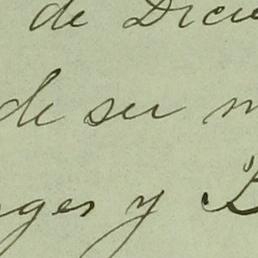 de Dicie
de su m
ges y B